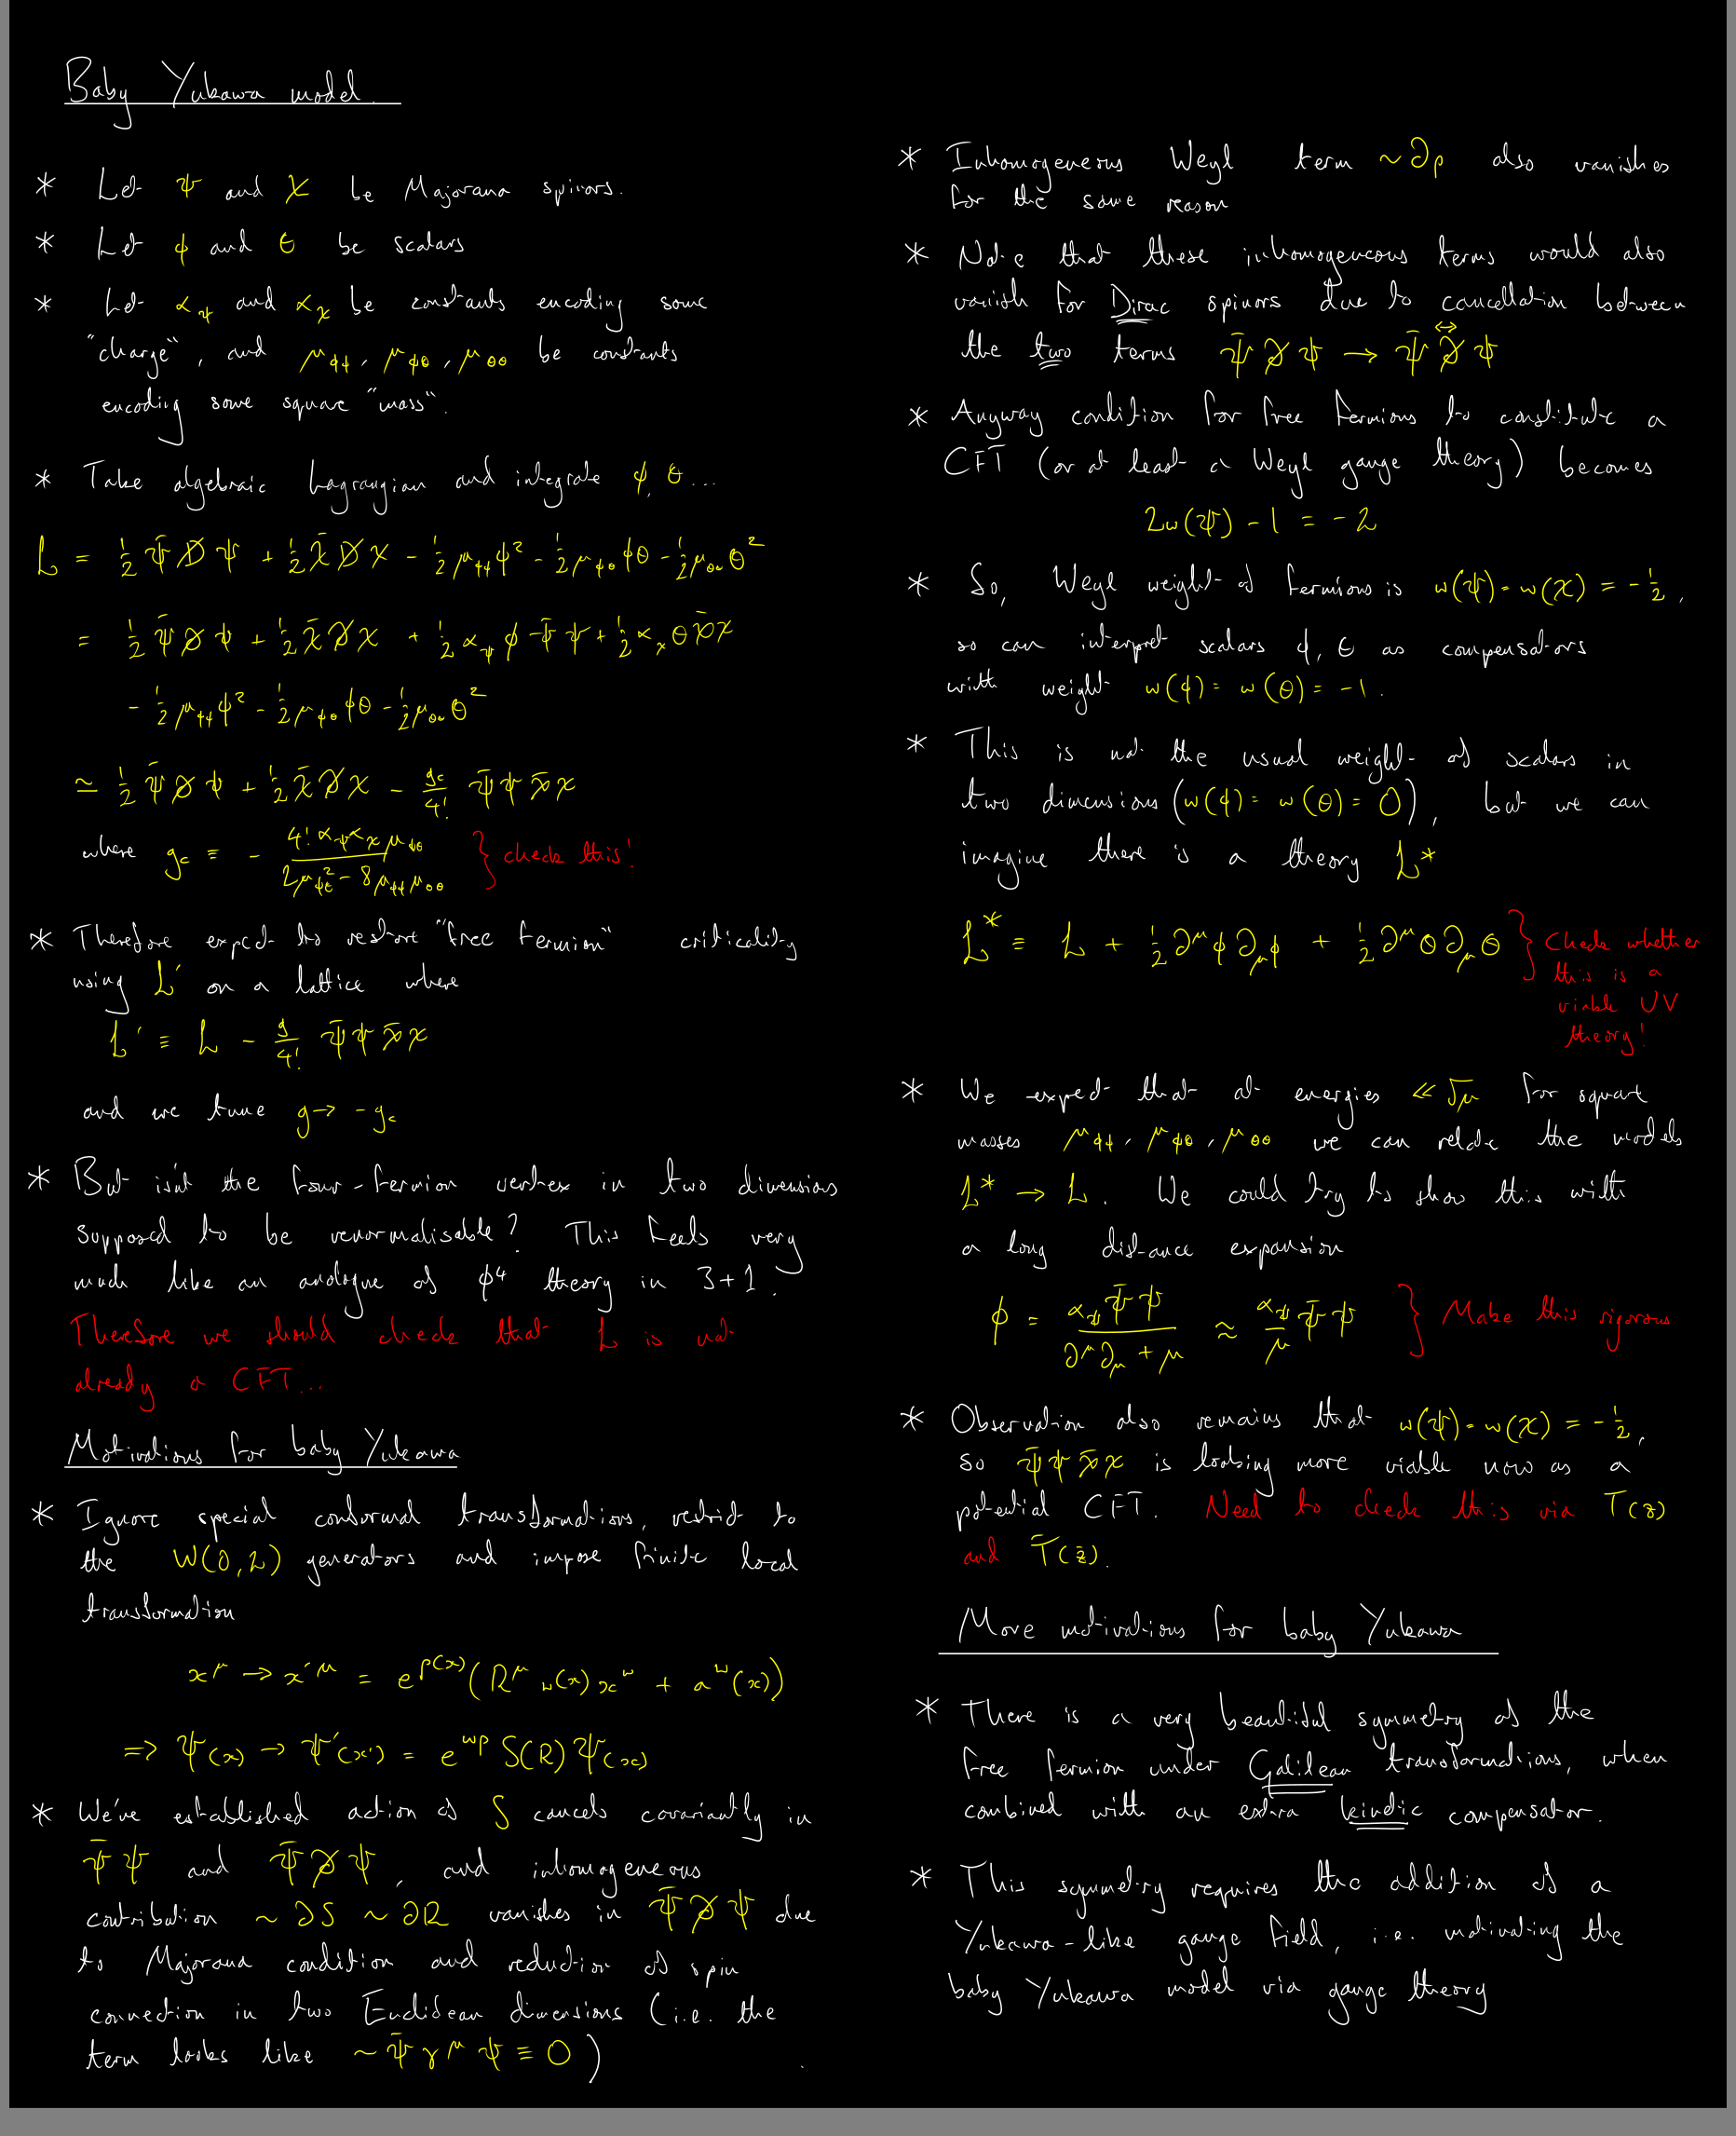 Baby Yukawa model.
* Let ψ and χ be Majorana spinors.
* Let ϕ and θ be scalars
* Let α_ψ and α_χ be constants encoding some
"charge", and μ_ϕϕ, μ_ϕθ, μ_θθ be constants
encoding some square "mass".
* Take algebraic Lagrangian and integrate ϕ, θ...
L = ½ ψ̄ D̸ ψ + ½ χ̄ D̸ χ - ½ μ_ϕϕ ϕ² - ½ μ_ϕθ ϕθ - ½ μ_θθ θ²
= ½ ψ̄ ∂̸ ψ + ½ χ̄ ∂̸ χ + ½ α_ψ ϕ ψ̄ψ + ½ α_χ θ χ̄χ
- ½ μ_ϕϕ ϕ² - ½ μ_ϕθ ϕθ - ½ μ_θθ θ²
≃ ½ ψ̄ ∂̸ ψ + ½ χ̄ ∂̸ χ - g_c/4! ψ̄ψ χ̄χ
where g_c ≡ - 4! α_ψ α_χ μ_ϕθ / (2μ_ϕθ² - 8μ_ϕϕ μ_θθ) } check this!
* Therefore expect to restore "free fermion" criticality
using L' on a lattice where
L' ≡ L - g/4! ψ̄ψ χ̄χ
and we tune g → -g_c
* But isn't the four-fermion vertex in two dimensions
supposed to be renormalisable? This feels very
much like an analogue of ϕ⁴ theory in 3+1?
Therefore we should check that L is not
already a CFT...
Motivations for baby Yukawa
* Ignore special conformal transformations, restrict to
the W(0,2) generators and impose finite local
transformation
x^μ → x'^μ = e^ρ(x) (R^μ_ν(x) x^ν + a^ν(x))
=> ψ(x) → ψ'(x') = e^wρ S(R) ψ(x)
* We've established action of S cancels covariantly in
ψ̄ψ and ψ̄ ∂̸ ψ, and inhomogeneous
contribution ~ ∂S ~ ∂R vanishes in ψ̄ ∂̸ ψ due
to Majorana condition and reduction of spin
connection in two Euclidean dimensions (i.e. the
term looks like ~ ψ̄ γ^μ ψ ≡ 0)
* Inhomogeneous Weyl term ~ ∂ρ also vanishes
for the same reason
* Note that these inhomogeneous terms would also
vanish for Dirac spinors due to cancellation between
the two terms ψ̄ ∂̸ ψ → ψ̄ ∂̸↔ ψ
* Anyway condition for free fermions to constitute a
CFT (or at least a Weyl gauge theory) becomes
2w(ψ) - 1 = -2
* So, Weyl weight of fermions is w(ψ) = w(χ) = -½,
so can interpret scalars ϕ, θ as compensators
with weight w(ϕ) = w(θ) = -1.
* This is not the usual weight of scalars in
two dimensions (w(ϕ) = w(θ) = 0), but we can
imagine there is a theory L*
L* ≡ L + ½ ∂^μ ϕ ∂_μ ϕ + ½ ∂^μ θ ∂_μ θ } Check whether
this is a
viable UV
theory!
* We expect that at energies ≪ √μ for square
masses μ_ϕϕ, μ_ϕθ, μ_θθ we can relate the models
L* → L. We could try to show this with
a long distance expansion
ϕ = α_ψ ψ̄ψ / (∂^μ ∂_μ + μ) ≈ α_ψ/μ ψ̄ψ } Make this rigorous
* Observation also remains that w(ψ) = w(χ) = -½,
so ψ̄ψ χ̄χ is looking more viable now as a
potential CFT. Need to check this via T(z)
and T̄(z̄).
More motivations for baby Yukawa
* There is a very beautiful symmetry of the
free fermion under Galilean transformations, when
combined with an extra kinetic compensator.
* This symmetry requires the addition of a
Yukawa-like gauge field, i.e. motivating the
baby Yukawa model via gauge theory